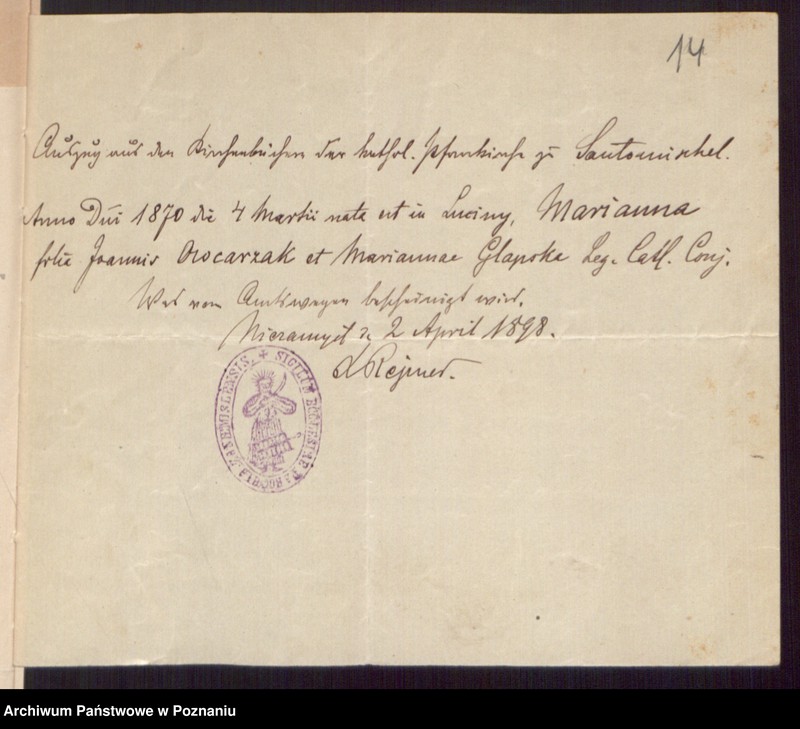 14
Auszug aus den Kirchenbüchern der kathol. Pfarrkirche zu Santomischel.
Anno Dni 1870 die 4 Martii nata est in Luciny, Marianna
filia Joannis Owocarzak et Mariannae Glapska Leg. Cath. Conj.
Was von Amtswegen bescheinigt wird.
2 April 1898.
SIGILUM ECCLESIAE
Archiwum Państwowe w Poznaniu